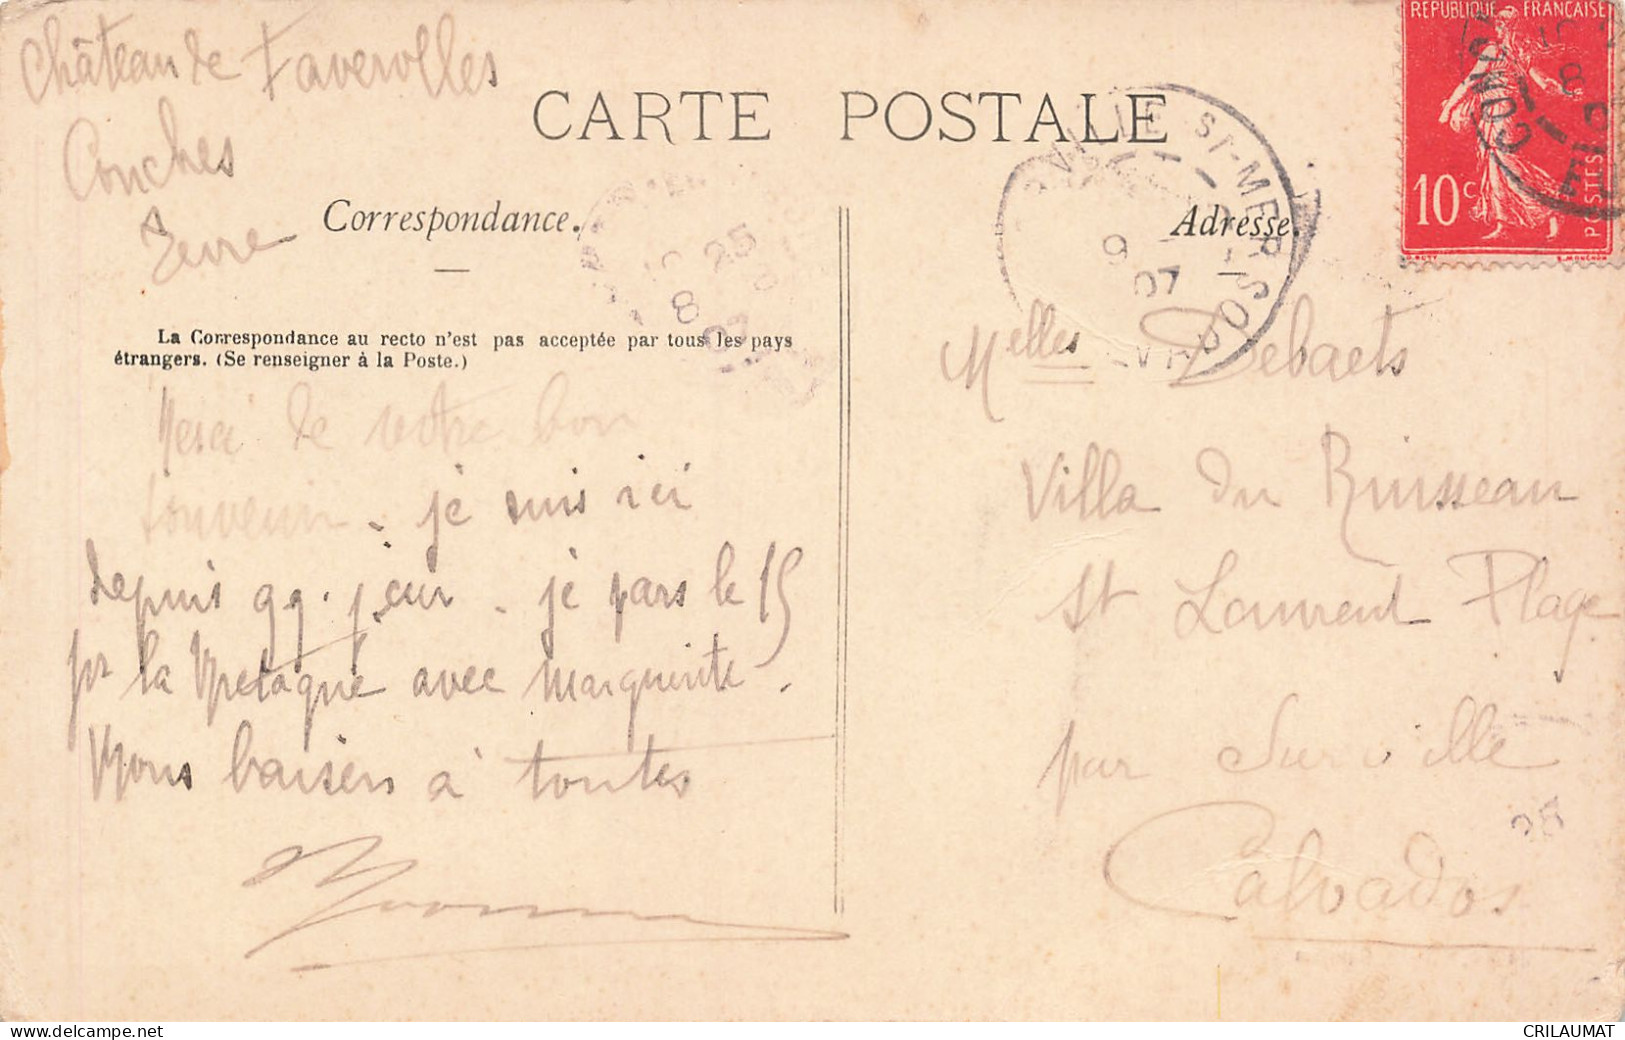 Château de Faverolles
Conches
Eure
CARTE POSTALE
Correspondance.
Adresse.
La Correspondance au recto n'est pas acceptée par tous les pays
étrangers. (Se renseigner à la Poste.)
Merci de votre bon
souvenir. je suis ici
depuis qq. jour. je pars le 15
pr la Bretagne avec Marguerite.
Bons baisers à toutes
Yvonne
Melles Debaets
Villa du Ruisseau
St Laurent Plage
par Surville
Calvados
REPUBLIQUE FRANÇAISE
10c
POSTES
CONCH
VILLE SR-MER
CALVADOS
9
07
10 25
8
25
www.delcampe.net
CRILAUMAT